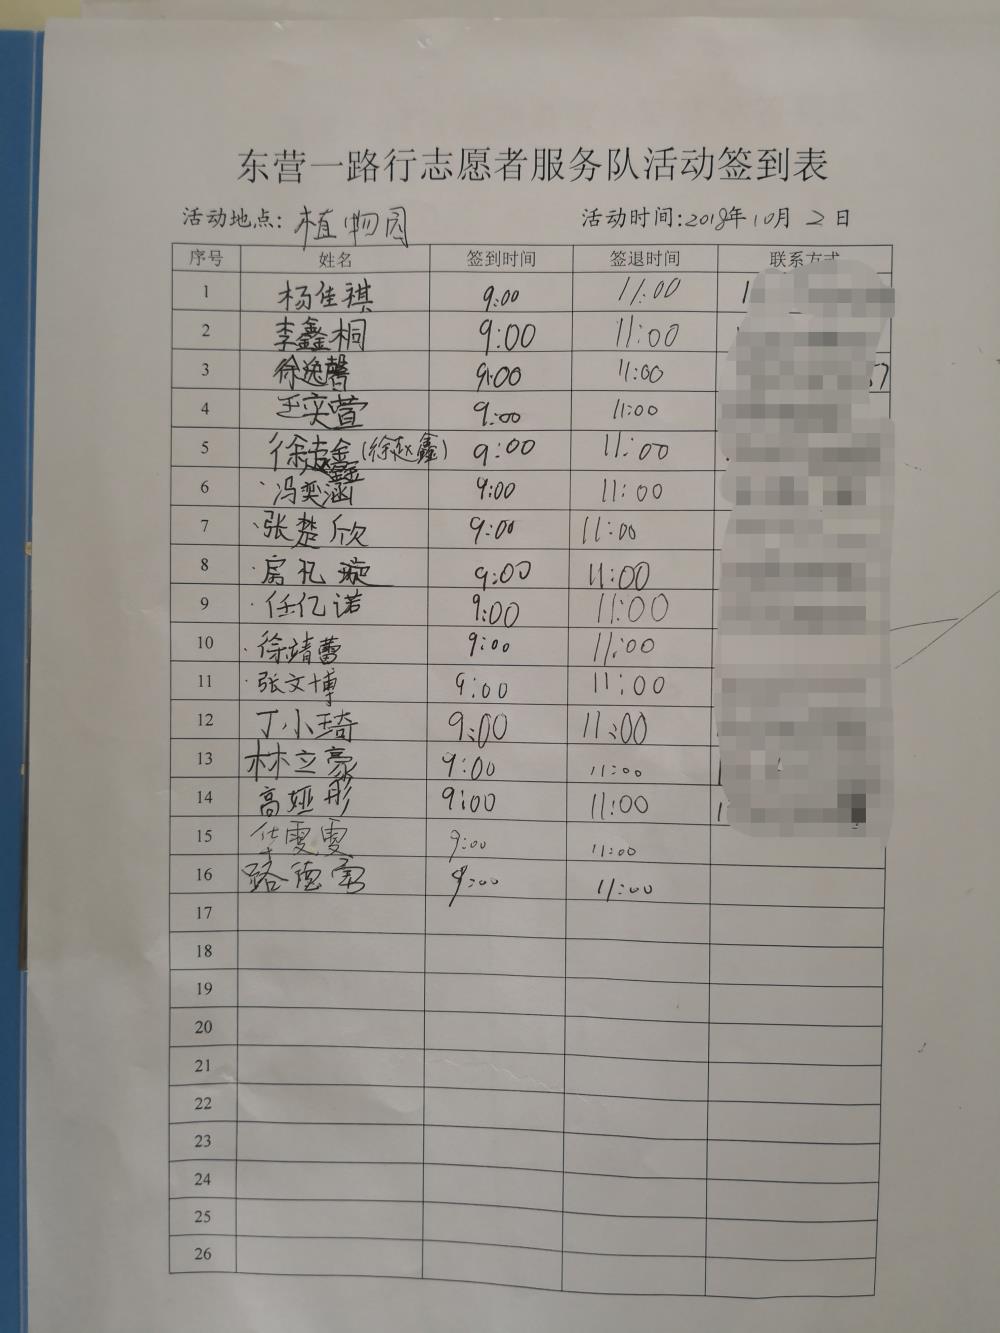 东营一路行志愿者服务队活动签到表
活动地点: 植物园 活动时间:2018年10月2日
序号 姓名 签到时间 签退时间 联系方式
1 杨佳祺 9:00 11:00 1
2 李鑫桐 9:00 11:00
3 徐逸馨 9:00 11:00
4 王奕萱 9:00 11:00
5 徐赵鑫(徐赵鑫) 9:00 11:00
6 冯奕涵 9:00 11:00
7 张楚欣 9:00 11:00
8 扈礼璇 9:00 11:00
9 任亿诺 9:00 11:00
10 徐靖蕾 9:00 11:00
11 张文博 9:00 11:00
12 丁小琦 9:00 11:00
13 林立豪 9:00 11:00
14 高娅彤 9:00 11:00
15 华雯雯 9:00 11:00
16 路德 9:00 11:00
17
18
19
20
21
22
23
24
25
26